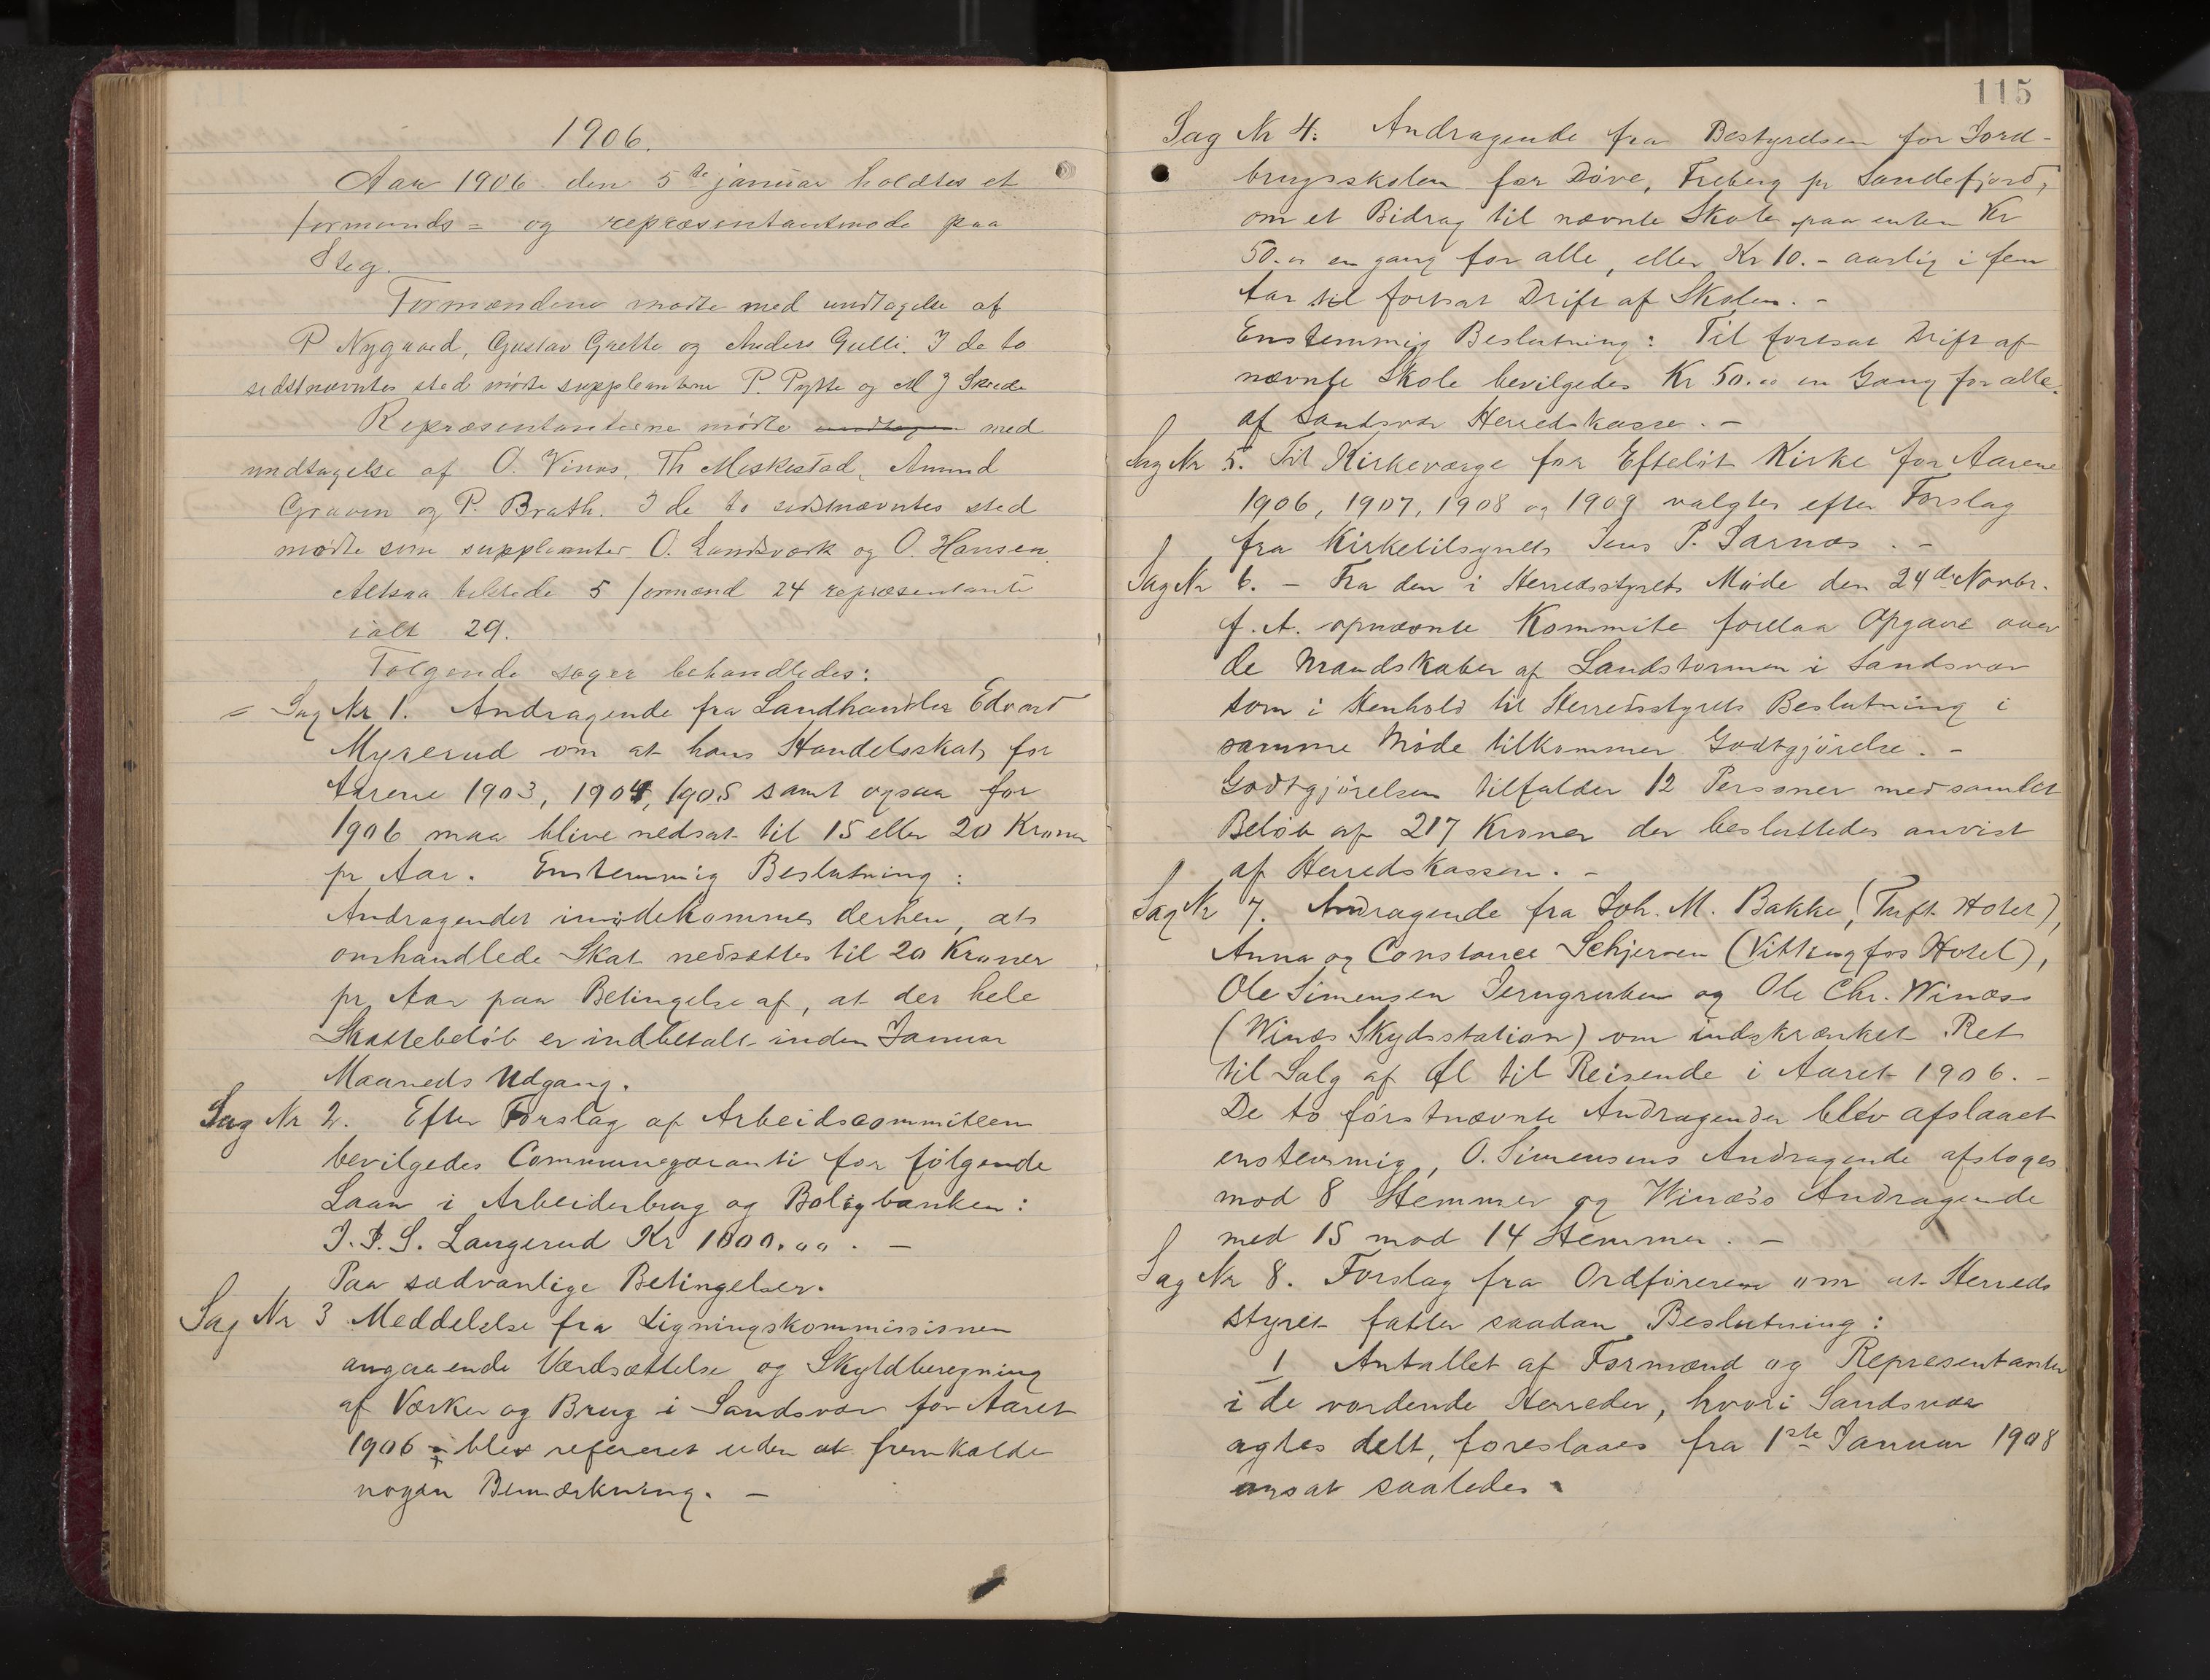 1906.
Aar 1906 den 5te januar holdtes et
formands- og repræsentantmøde paa
Steg.
Formændene mødte med undtagelse af
P Nygaard, Gustav Grette og Anders Gulli. I de to
sidstnævntes sted mødte suppleantene P. Pytte og M J Skrede
Repræsentanterne mødte undtagen med
undtagelse af O. Vinæs, Th Meskestad, Amund
Graven og P. Brath. I de to sidstnævntes sted
mødte som suppleanter O. Landsværk og O. Hansen
Altsaa tilstede 5 formænd 24 repræsentanter
ialt 29.
Følgende sager behandledes:
= Sag Nr 1. Andragende fra Landhandler Edvard
Myrerud om at hans Handelsskat for
Aarene 1903, 1904, 1905 samt ogsaa for
1906 maa blive nedsat til 15 eller 20 Kroner
pr Aar. Enstemmig Beslutning:
Andragendet imødekommes derhen, at
omhandlede Skat nedsættes til 20 Kroner
pr Aar paa Betingelse af, at det hele
Skattebeløb er indbetalt inden Januar
Maaneds Udgang.
Sag Nr 2. Efter Forslag af Arbeidscommiteen
bevilgedes Communegaranti for følgende
Laan i Arbeiderbrug og Boligbanken:
J. P. S. Langerud Kr 1000.00. —
Paa sædvanlige Betingelser.
Sag Nr 3 Meddelelse fra Ligningskommissionen
angaaende Værdsættelse og Skyldberegning
af Værker og Brug i Sandsvær for Aaret
1906 blev refereret uden at fremkalde
nogen Bemærkning. —
115
Sag Nr 4. Andragende fra Bestyrelsen for Jord-
brugsskolen for Døve, Freberg pr Sandefjord,
om et Bidrag til nævnte Skole paa enten Kr
50.00 en gang for alle, eller Kr 10.- aarlig i fem
Aar til fortsat Drift af Skolen. -
Enstemmig Beslutning: Til fortsat Drift af
nævnte Skole bevilgedes Kr 50.00 en Gang for alle
af Sandsvær Herredskasse. —
Sag Nr 5. Til Kirkeværge for Efteløt Kirke for Aarene
1906, 1907, 1908 og 1909 valgtes efter Forslag
fra Kirketilsynets Jens P. Sarnæs. —
Sag Nr 6. - Fra den i Herredsstyrets Møde den 24de Novbr.
f. A. opnævnte Kommite forelaa Opgave over
de Mandskaber af Landstormen i Sandsvær
som i Henhold til Herredsstyrets Beslutning i
samme Møde tilkommer Godtgjørelse. -
Godtgjørelsen tilfalder 12 Personer med samlet
Beløb af 217 Kroner der besluttedes anvist
af Herredskassen. -
Sag Nr 7. Andragende fra Joh. M. Bakke, (Tuft Hotel),
Anna og Constance Schjerven (Vittingfos Hotel),
Ole Simensen Jerngruben og Ole Chr. Winæs
(Winæs Skydsstation) om indskrænket Ret
til Salg af Øl til Reisende i Aaret 1906. -
De to førstnævnte Andragender blev afslaaet
enstemmig, O. Simensens Andragende afsloges
mod 8 Stemmer og Winæs's Andragende
med 15 mod 14 Stemmer. —
Sag Nr 8. Forslag fra Ordføreren om at Herreds
styret fatter saadan Beslutning:
1 Antallet af Formænd og Representanter
i de vordende Herreder, hvori Sandsvær
agtes delt, foreslaaes fra 1ste Januar 1908
ansat saaledes